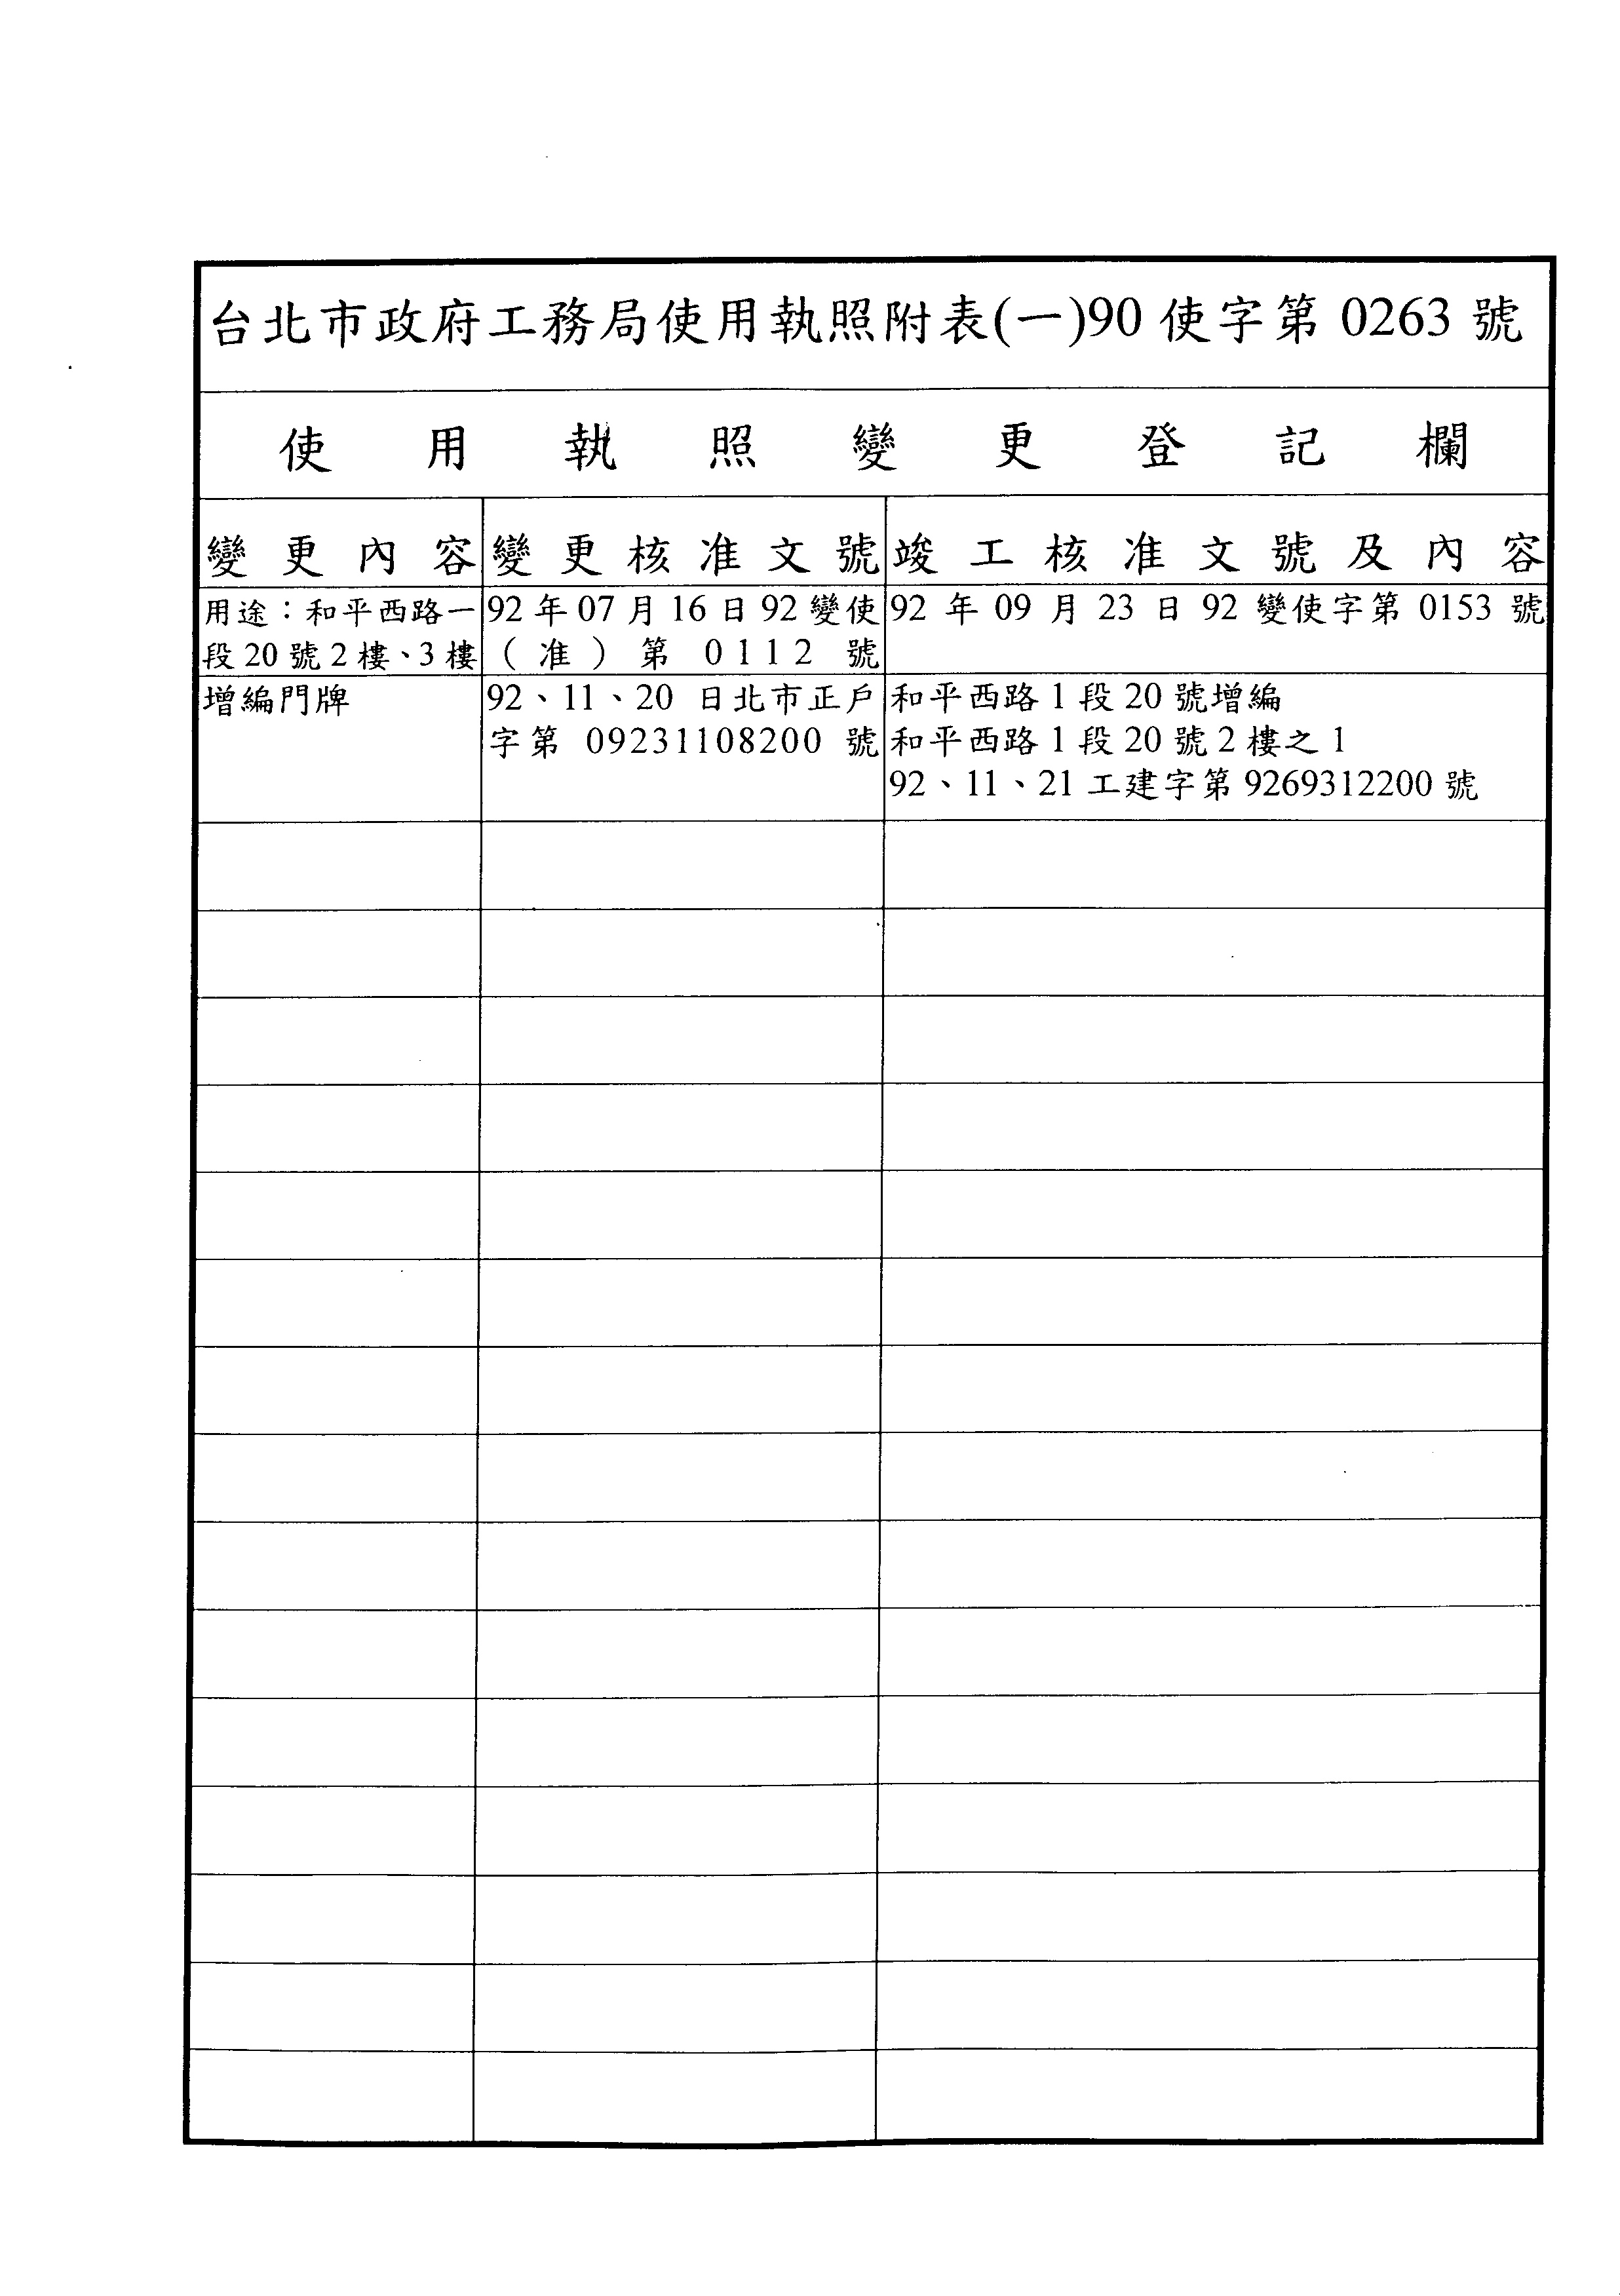 台北市政府工務局使用執照附表(一)90 使字第 0263 號
使用執照變更登記欄
變更內容 變更核准文號 竣工核准文號及內容
用途：和平西路一
段 20 號 2 樓、3 樓
92 年 07 月 16 日 92 變使
（准）第 0112 號
92 年 09 月 23 日 92 變使字第 0153 號
增編門牌
92、11、20 日北市正戶
字第 09231108200 號
和平西路 1 段 20 號增編
和平西路 1 段 20 號 2 樓之 1
92、11、21 工建字第 9269312200 號